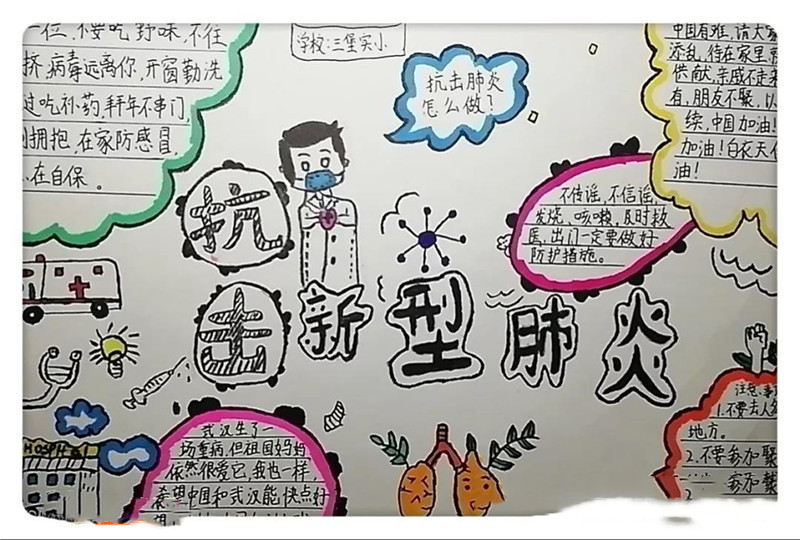 一位,不要吃野味,不往
挤,病毒远离你,开窗勤洗
过吃补药,拜年不串门,
拥抱,在家防感冒,
在自保。
学校:三堡实小
抗击肺炎
怎么做?
中国有难,请大家
添乱,待在家里,
供献,亲戚不走来
有,朋友不聚,以
续,中国加油!
加油!白衣天使
油!
不传谣,不信谣,
发烧、咳嗽,及时救
医,出门一定要做好
防护措施。
抗
击新型肺炎
HOSPITAL
武汉生了一
场重病,但祖国妈妈
依然很爱它,我也一样,
希望中国和武汉能快点好
注意事
1.不要去人
地方。
2.不要参加聚
参加